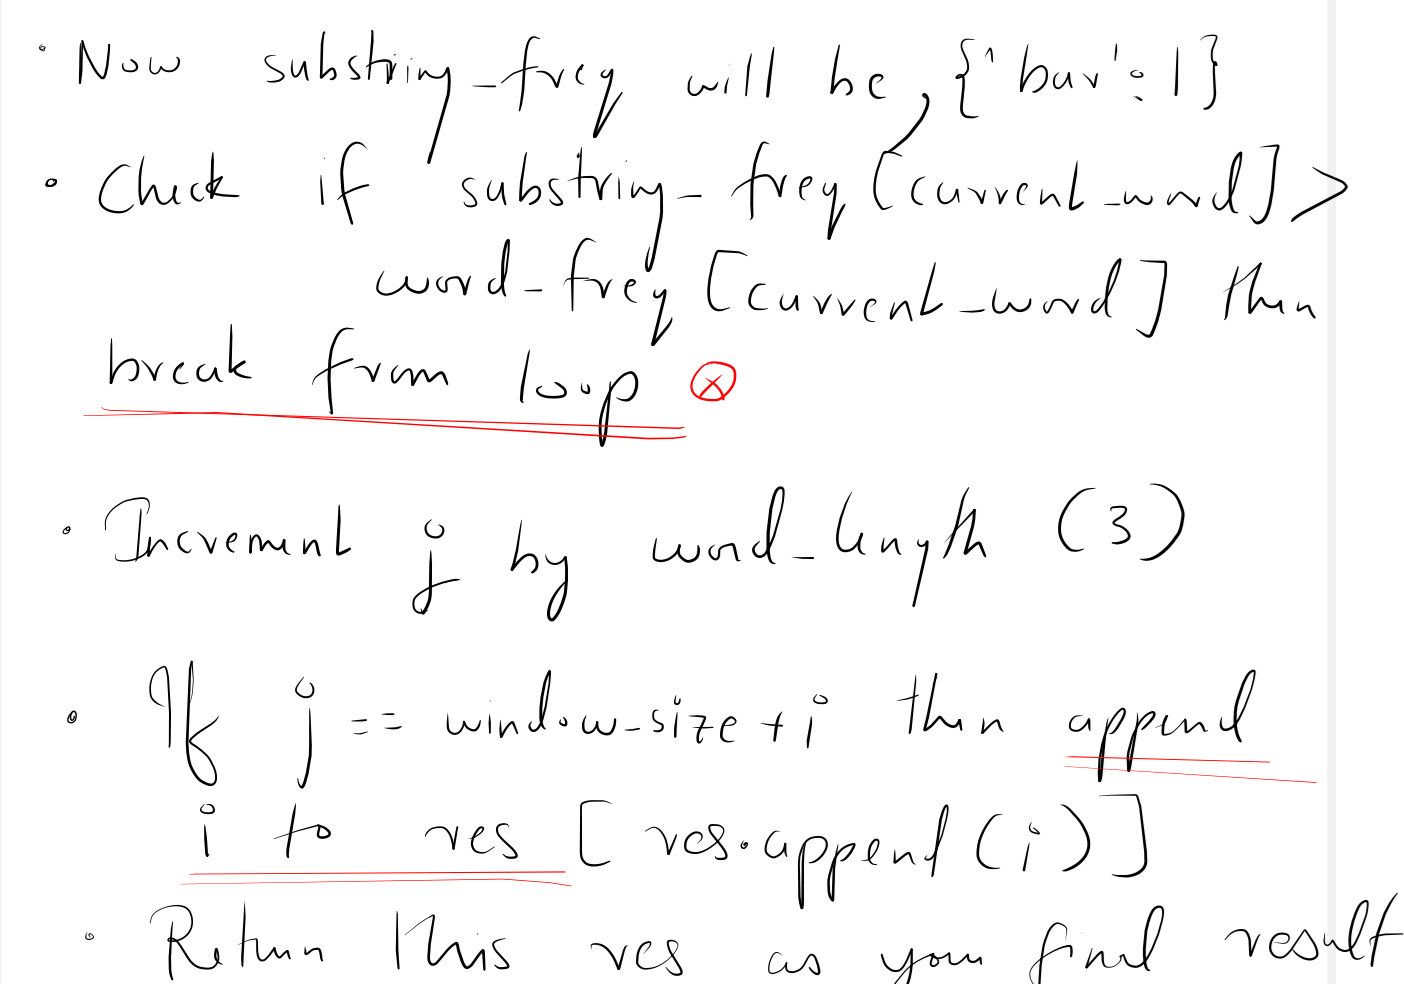 • Now substring_freq will be, {'bar': 1}
• Check if substring_freq [current_word] >
word_freq [current_word] then
break from loop ⊗
• Increment j by word_length (3)
• If j == window_size + i then append
i to res [res.append(i)]
• Return this res as your final result